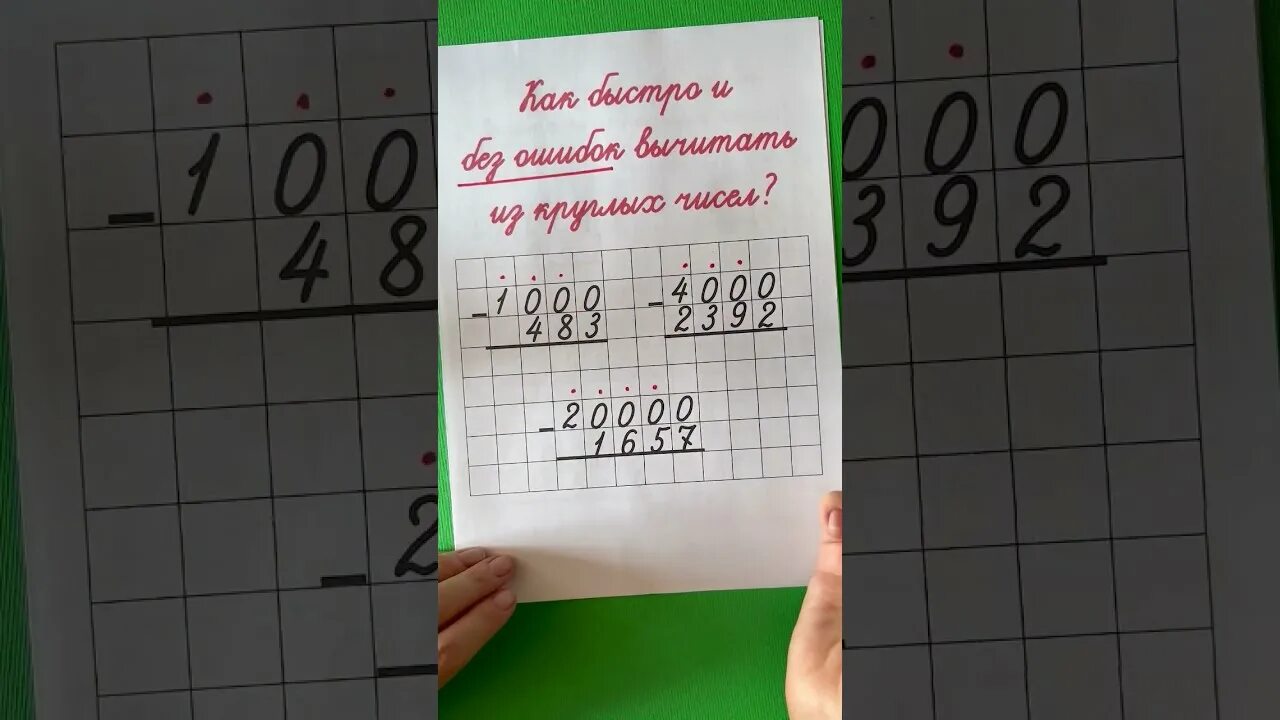 - 100
48
- 2
Как быстро и
без ошибок вычитать
из круглых чисел?
- 1000
483
- 4000
2392
- 20000
1657
000
392